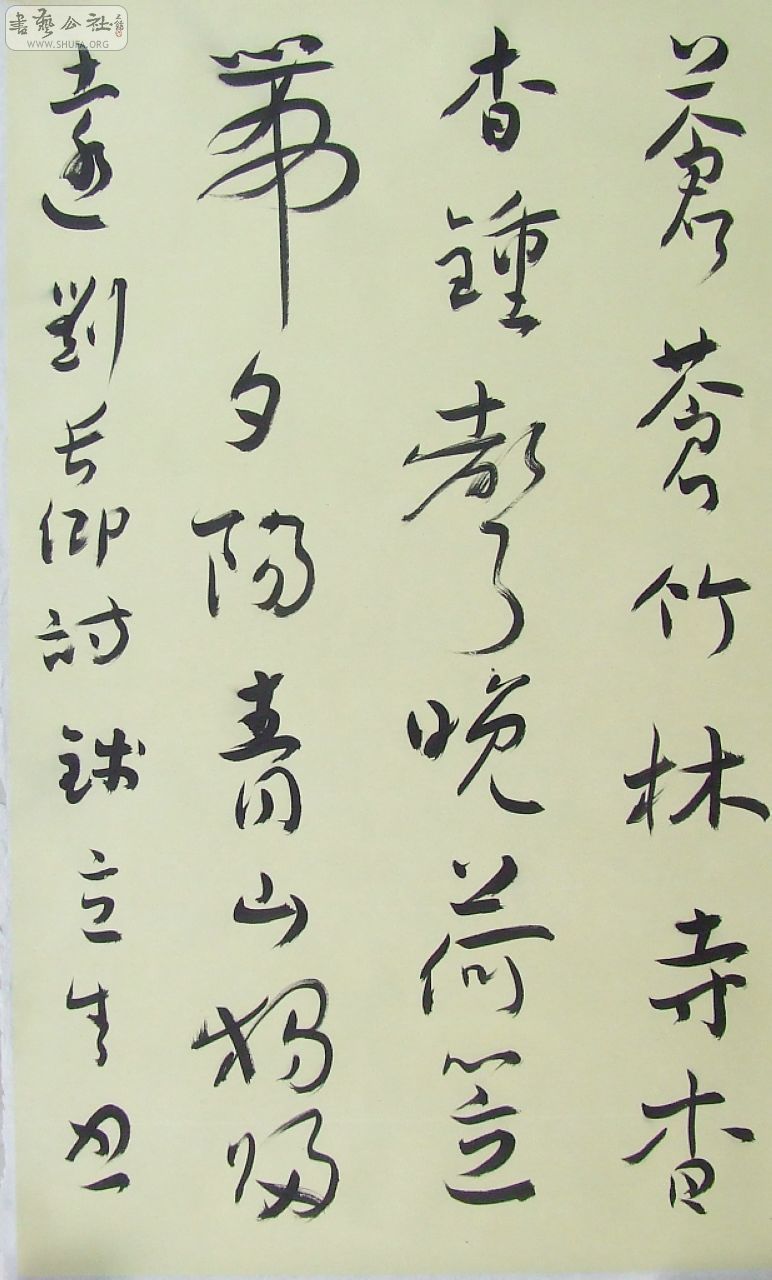 蒼蒼竹林寺杳
杳鍾聲晚荷笠
帶夕陽青山獨歸
遠劉長卿詩錢立生
書藝公社
WWW.SHUFA.ORG